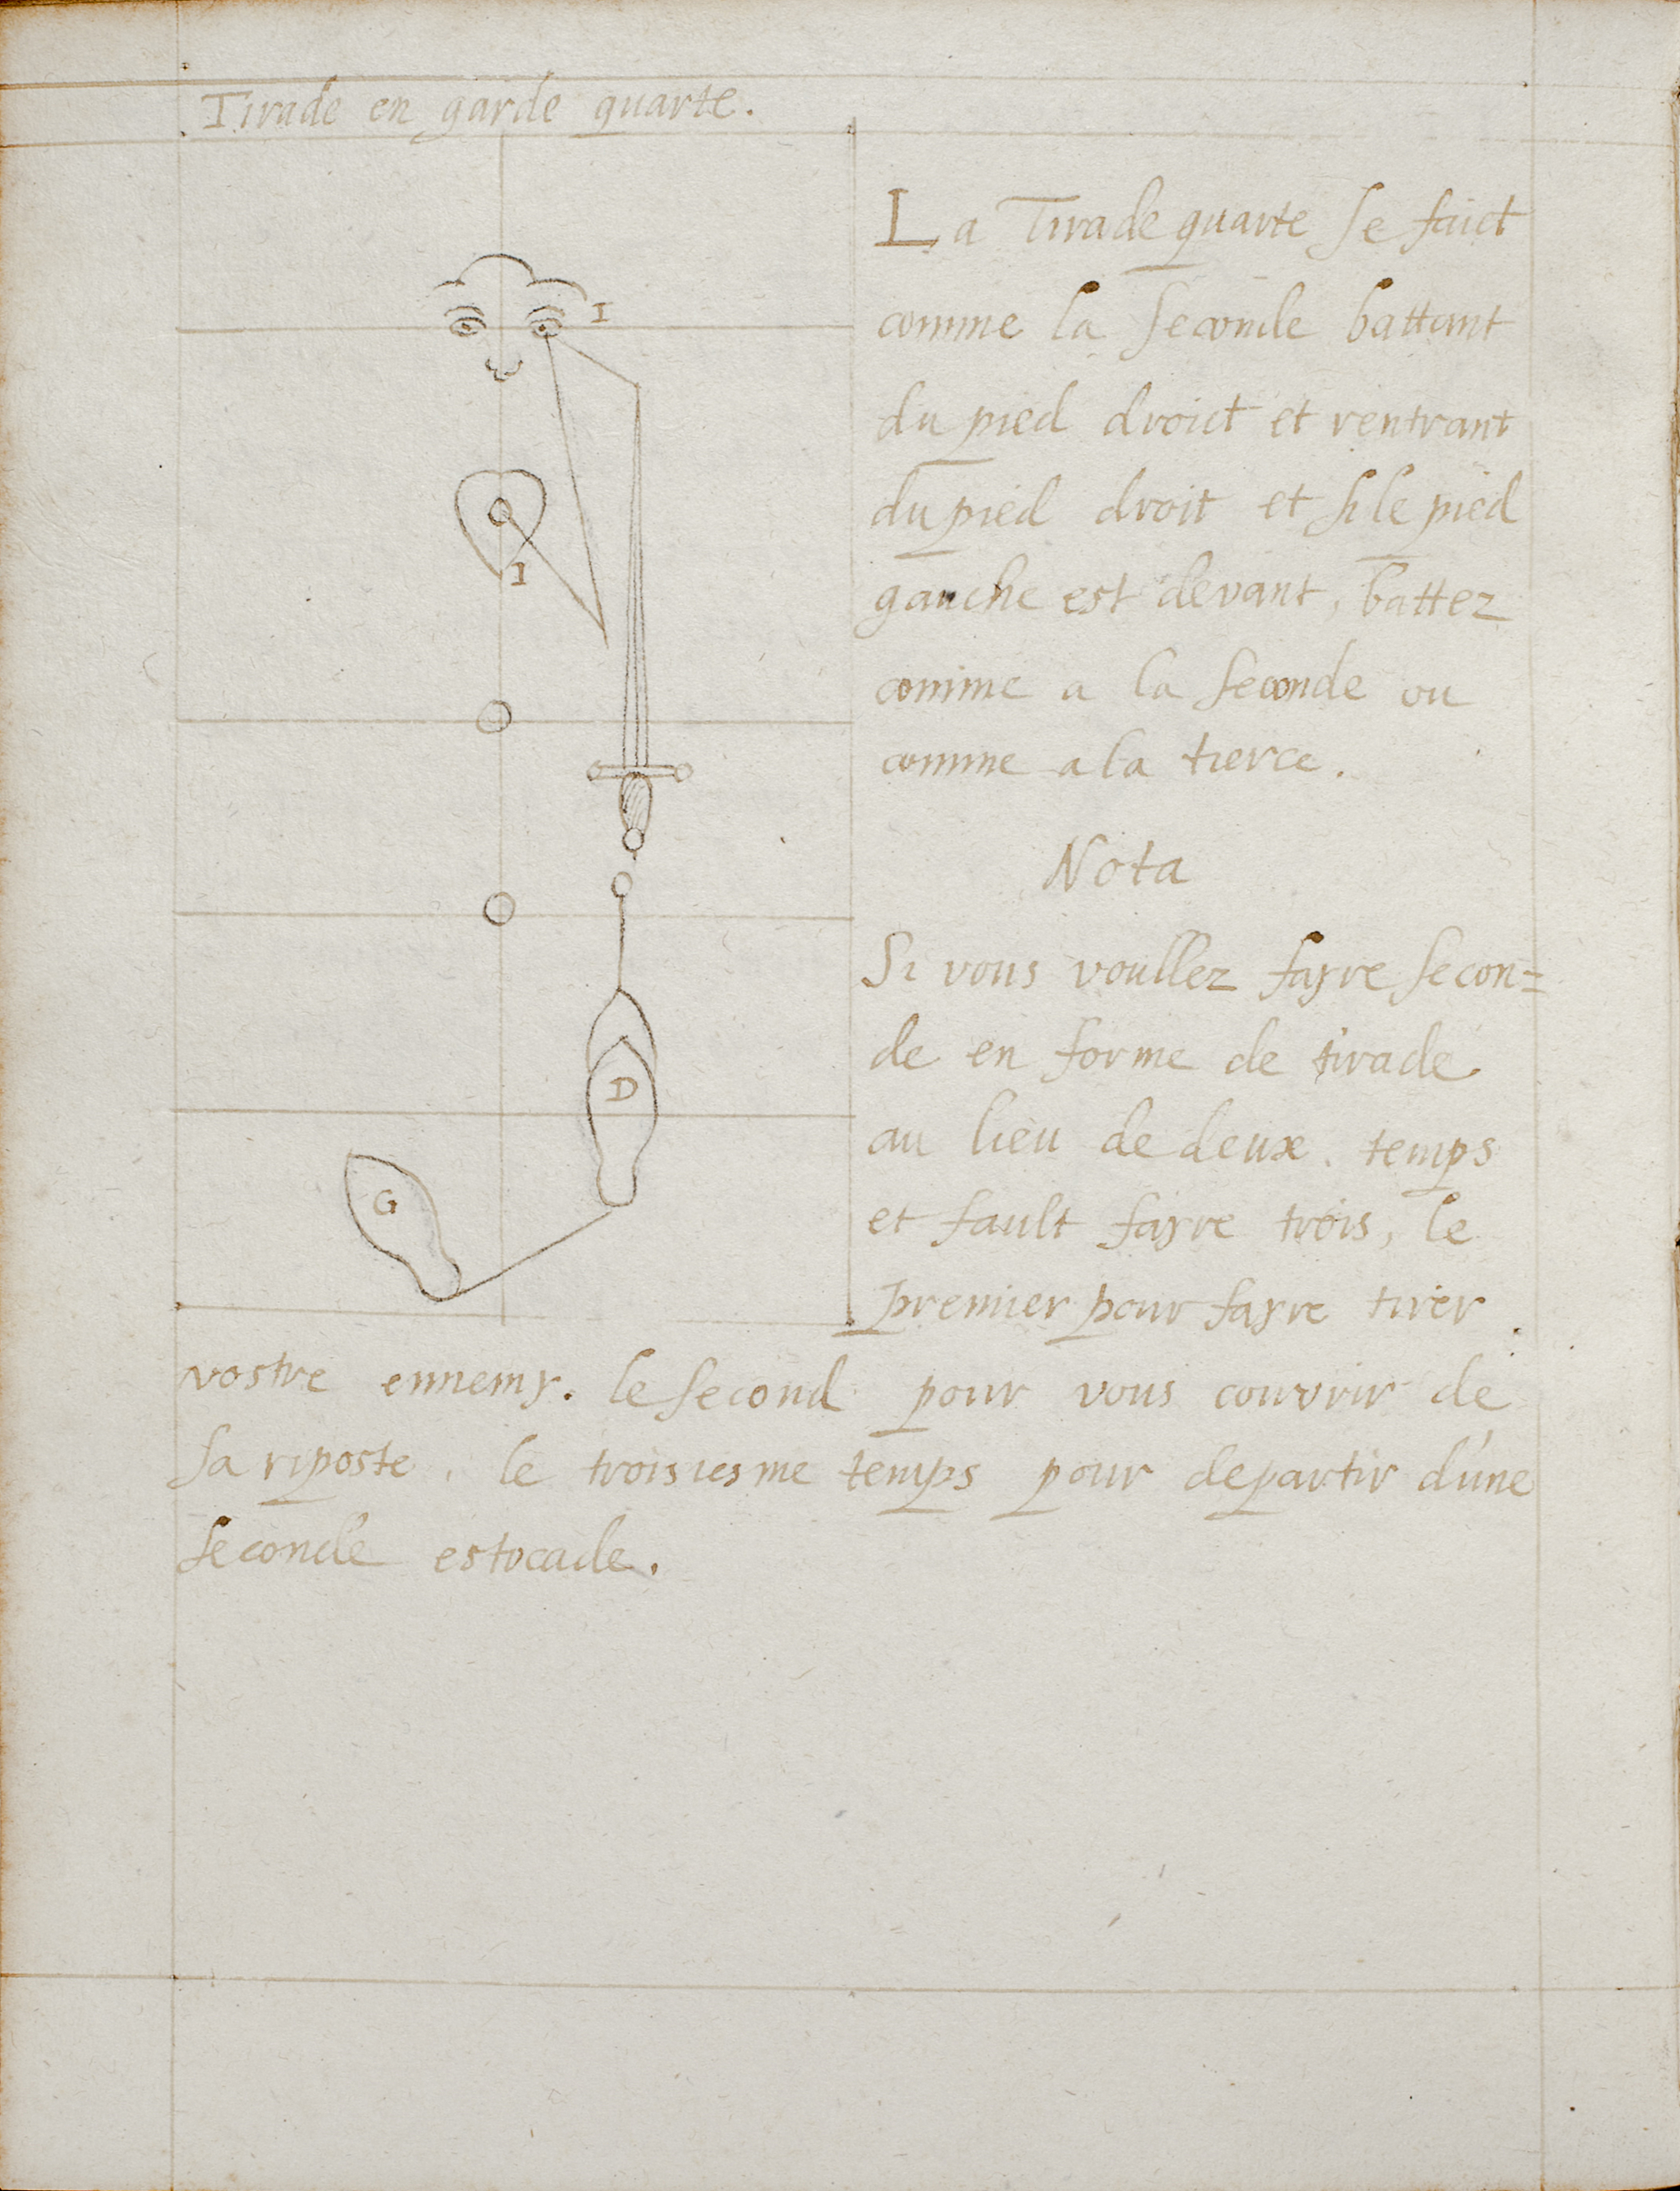 Tirade en garde quarte.
I
I
D
G
La Tirade quarte se faict
comme la seconde battant
du pied droict et rentrant
du pied droit et si le pied
gauche est devant, battez
comme a la seconde ou
comme a la tierce.
Nota
Si vous voullez fayre secon=
de en forme de tirade
au lieu de deux temps
et fault fayre trois, le
premier pour fayre tirer
vostre ennemy. le second pour vous couvrir de
sa riposte, le troisiesme temps pour departir d'une
seconde estocade.